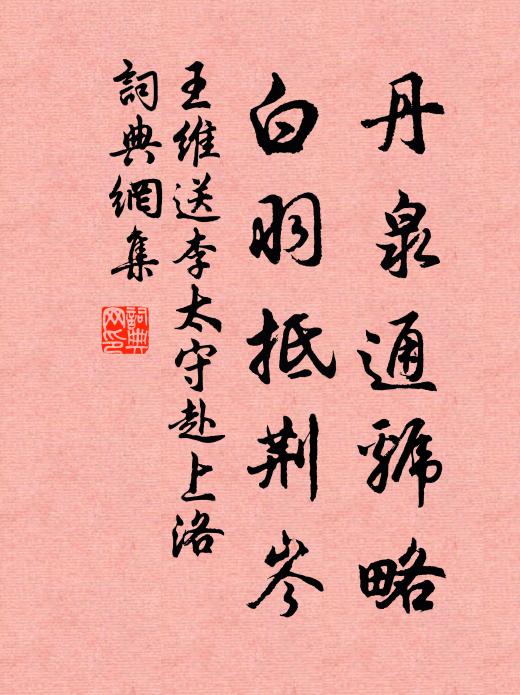 丹泉通虢略
白羽抵荆岑
王維送李太守赴上洛
詞典網集
詞典網印